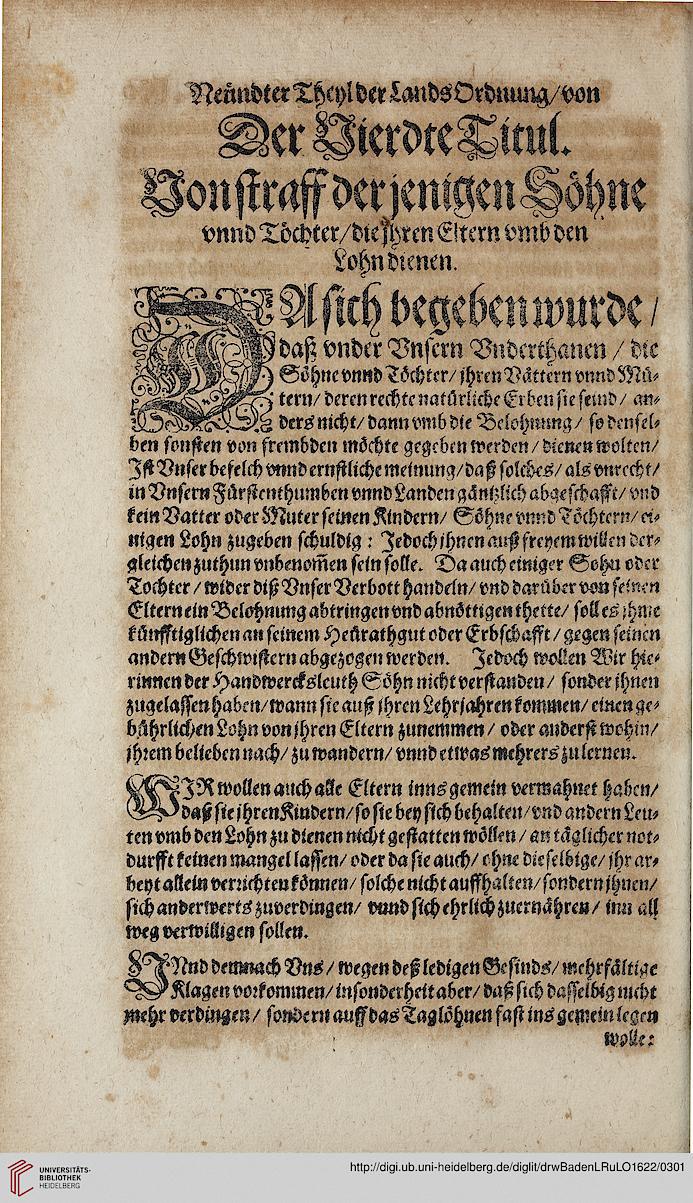 Neündter Theyl der Lands Ordnung/ von
Der Vierdte Titul.
Von straff der jenigen Söhne
vnnd Töchter/ die jhren Eltern vmb den
Lohn dienen.
DA sich begeben wurde/
daß vnder Vnsern Vnderthanen / die
Söhne vnnd Töchter/ jhren Vättern vnnd Mü-
tern/ deren rechte natürliche Erben sie seind/ an-
ders nicht/ dann vmb die Belohnung/ so densel-
ben sonsten von frembden möchte gegeben werden/ dienen wolten/
Ist Vnser befelch vnnd ernstliche meinung/ daß solches/ als vnrecht/
in Vnsern Fürstenthumben vnnd Landen gäntzlich abgeschafft/ vnd
kein Vatter oder Muter seinen Kindern/ Söhne vnnd Töchtern/ ei-
nigen Lohn zugeben schuldig : Jedoch ihnen auß freyem willen der-
gleichen zuthun vnbenom̅en sein solle. Da auch einiger Sohn oder
Tochter/ wider diß Vnser Verbott handeln/ vnd darüber von seinen
Eltern ein Belohnung abtringen vnd abnöttigen thette/ soll es jhme
künfftiglichen an seinem Heürathgut oder Erbschafft/ gegen seinen
andern Geschwistern abgezogen werden. Jedoch wollen Wir hie-
rinnen der Handwercksleuth Söhn nicht verstanden/ sonder jhnen
zugelassen haben/ wann sie auß jhren Lehrjahren kommen/ einen ge-
bührlichen Lohn von jhren Eltern zunemmen/ oder anderst wohin/
jhrem belieben nach/ zu wandern/ vnnd etwas mehrers zu lernen.
WIR wollen auch alle Eltern inns gemein vermahnet haben/
daß sie jhren Kindern/ so sie bey sich behalten/ vnd andern Leu-
ten vmb den Lohn zu dienen nicht gestatten wöllen/ an täglicher not-
durfft keinen mangel lassen/ oder da sie auch/ ohne dieselbige/ jhr ar-
beyt allein verrichten können/ solche nicht auffhalten/ sondern jhnen/
sich anderwerts zuverdingen/ vnnd sich ehrlich zuernähren/ inn all
weg verwilligen sollen.
VNnd demnach Vns/ wegen deß ledigen Gesinds/ mehrfältige
Klagen vorkommen/ insonderheit aber/ daß sich dasselbig nicht
mehr verdingen/ sondern auff das Taglöhnen fast ins gemein legen
wolle:
UNIVERSITÄTS-
BIBLIOTHEK
HEIDELBERG
http://digi.ub.uni-heidelberg.de/diglit/drwBadenLRuLO1622/0301